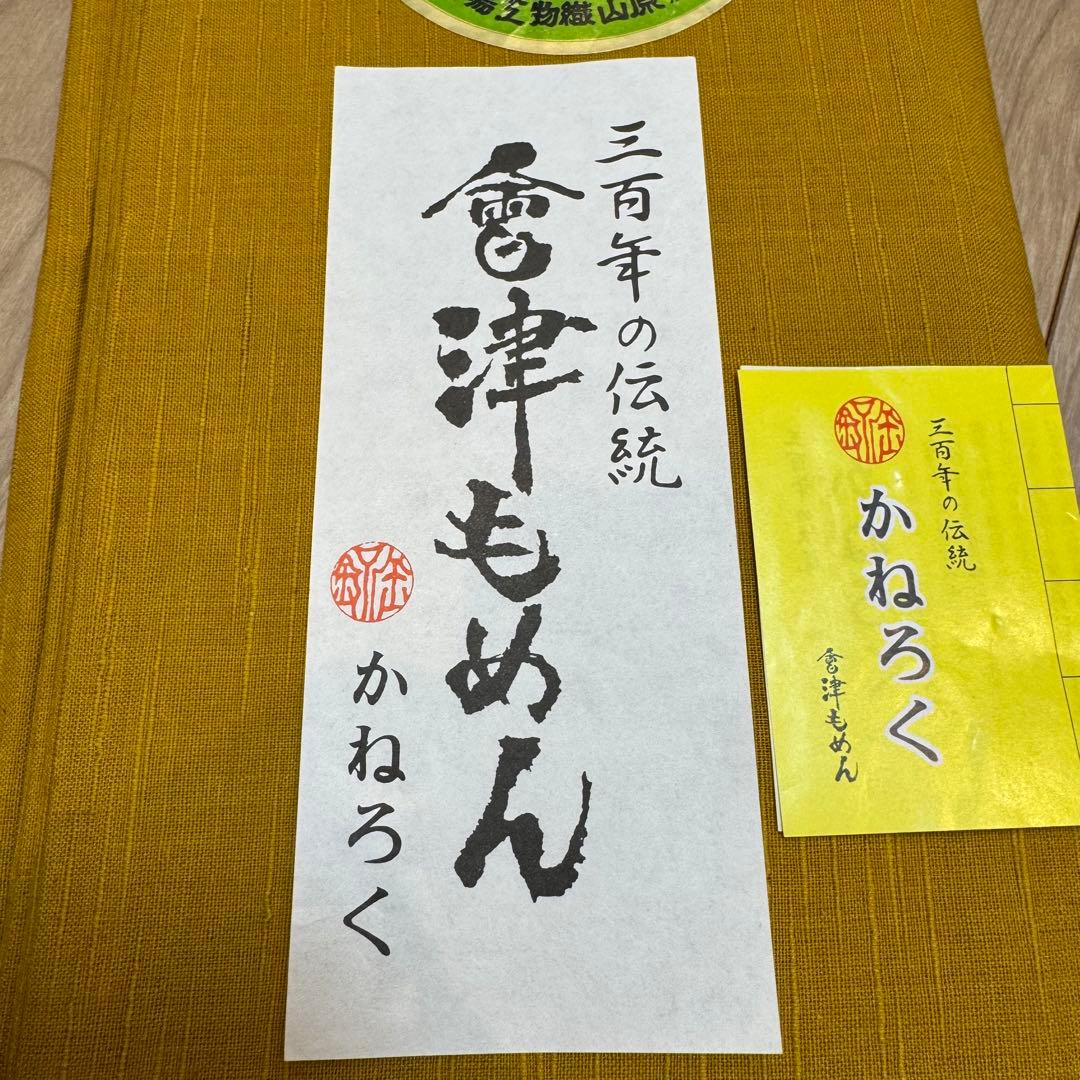 原山織物工場
三百年の伝統
會津もめん
かねろく
三百年の伝統
かねろく
會津もめん